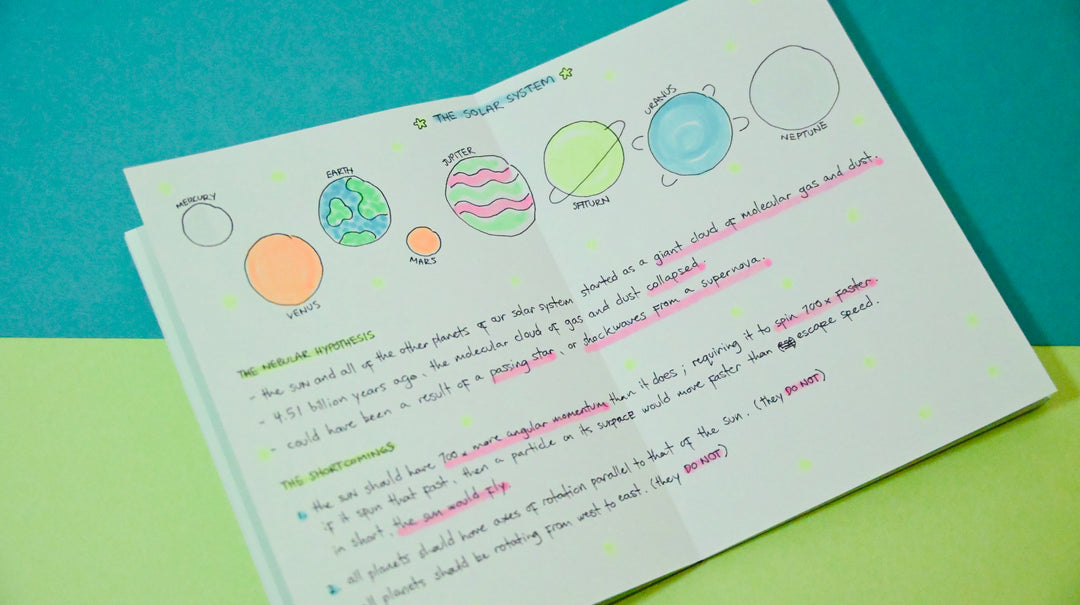 THE SOLAR SYSTEM
MERCURY
VENUS
EARTH
MARS
JUPITER
SATURN
URANUS
NEPTUNE
THE NEBULAR HYPOTHESIS
- the sun and all of the other planets of our solar system started as a giant cloud of molecular gas and dust.
- 4.51 billion years ago, the molecular cloud of gas and dust collapsed.
- could have been a result of a passing star, or shockwaves from a supernova.
THE SHORTCOMINGS
1 the sun should have 700x more angular momentum than it does; requiring it to spin 700x faster.
if it spun that fast, then a particle on its surface would move faster than escape speed.
in short, the sun would fly.
2 all planets should have axes of rotation parallel to that of the sun. (they DO NOT)
all planets should be rotating from west to east. (they DO NOT)